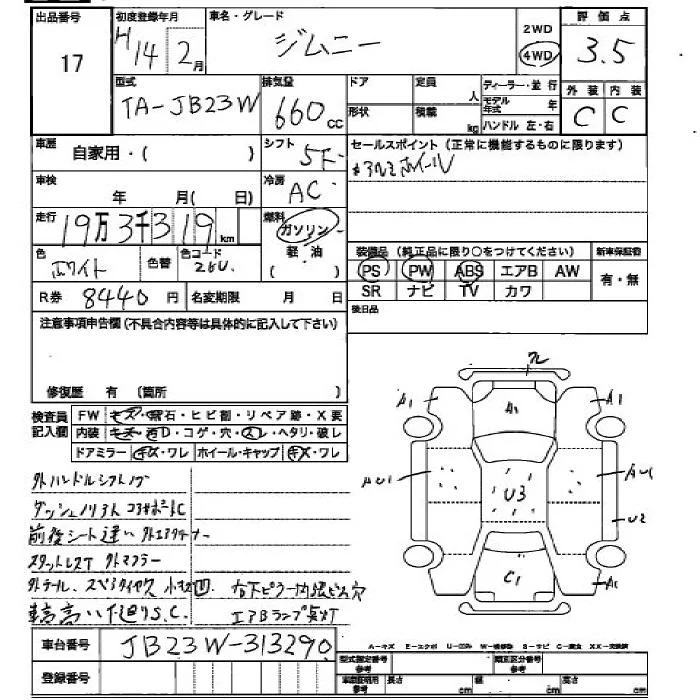 出品番号 初度登録年月 車名・グレード 2WD 評価点
17 H14 2月 ジムニー 4WD 3.5
型式 排気量 ドア 定員 人 ディーラー・並行 外装 内装
TA-JB23W 660cc 形状 積載 kg モデル年式 年 C C
ハンドル 左・右
車歴 自家用・( ) シフト 5F セールスポイント(正常に機能するものに限ります)
車検 年 月( 日) 冷房 AC ホイール
走行 19万3千319km 燃料 ガソリン
軽・油
( )
色 ホワイト 色替 色コード 26U. 装備品(純正品に限り○をつけてください) 新車保証書
PS PW ABS エアB AW 有・無
R券 8440円 名変期限 月 日 SR ナビ TV カワ
注意事項申告欄(不具合内容等は具体的に記入して下さい) 後日品
修復歴 有 (箇所 )
検査員記入欄 FW キズ・飛石・ヒビ割・リペア跡・X要
内装 キズ・汚D・コゲ・穴・スレ・ヘタリ・破レ
ドアミラー キズ・ワレ ホイール・キャップ キズ・ワレ
A1 A1 A1
U3
U2
C1 A1
外ハンドルシフトノブ
前後シート違い
スタットレスT 外マフラー
外テール、スペアタイヤ欠 小キズ凹.
車高高い S.C. エアBランプ点灯
車台番号 JB23W-313290
登録番号
A-キズ E-エクボ U-凹み W-補修跡 S-サビ C-腐食 XX-交換済
型式指定番号 参考 類別区分番号 参考
車庫証明用 参考 長さ cm 幅 cm 高さ cm